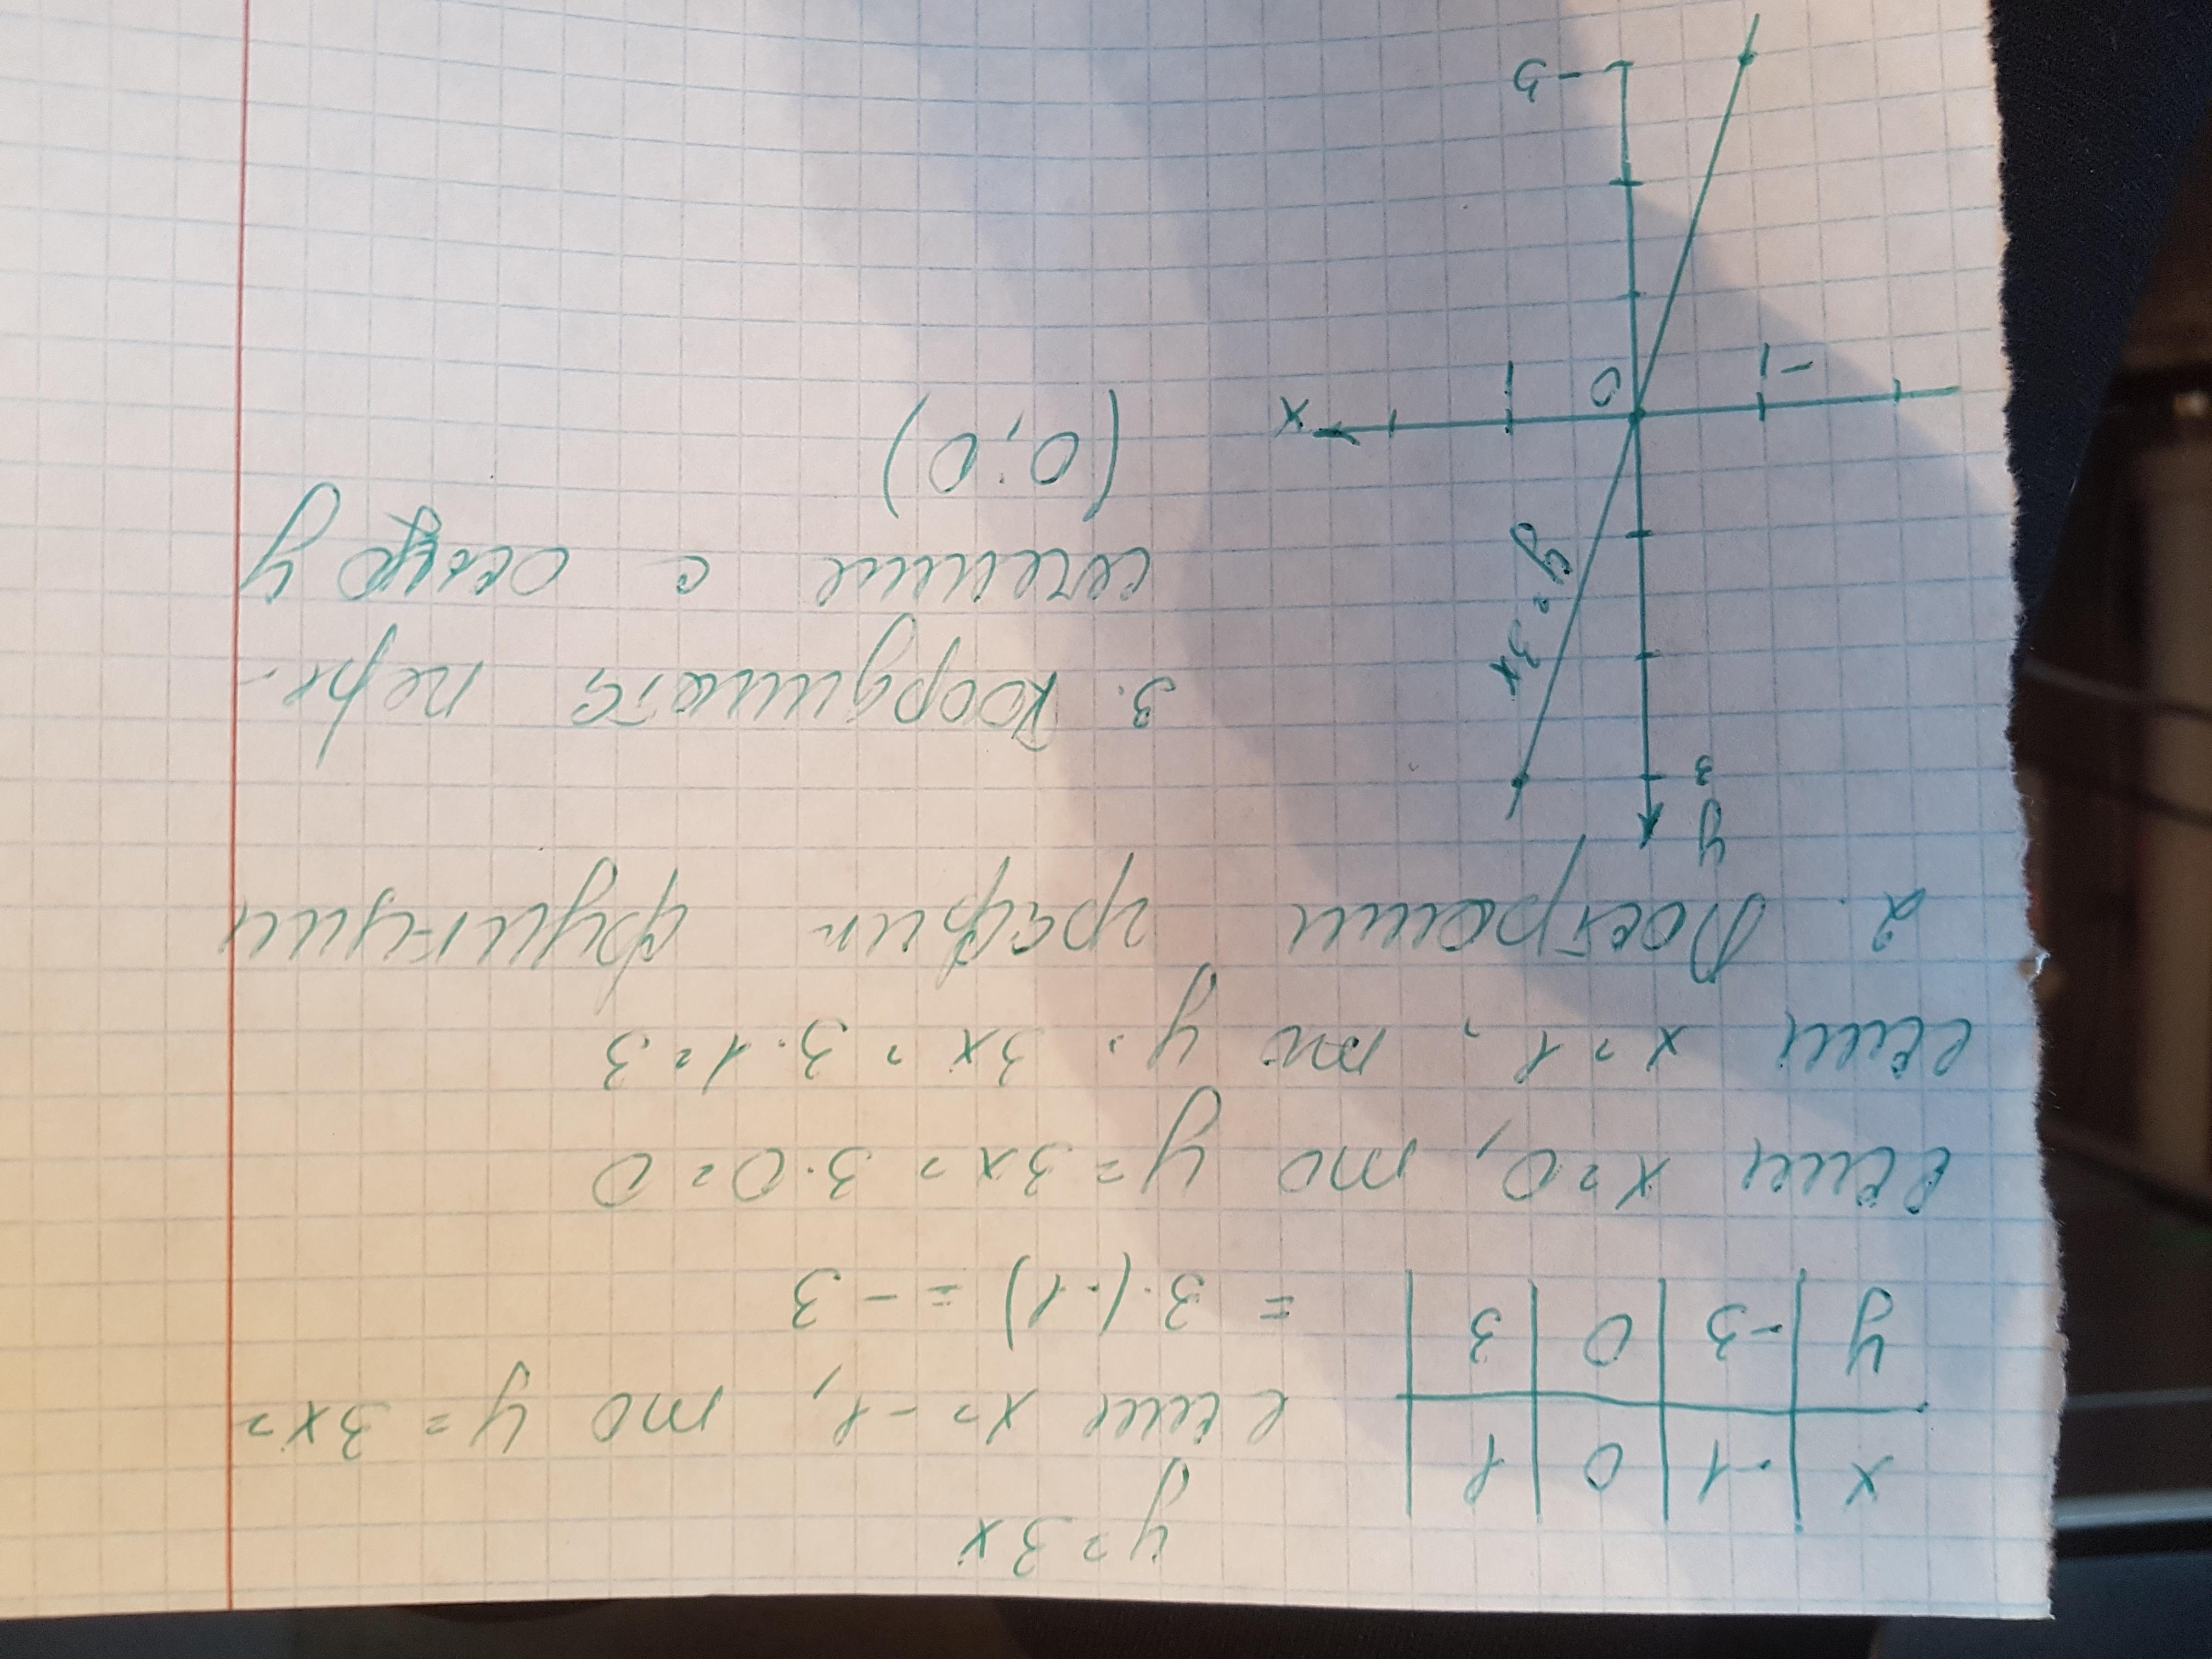 y = 3x
x | -1 | 0 | 1
y | -3 | 0 | 3
если x = -1, то y = 3x =
= 3·(-1) = -3
если x = 0, то y = 3x = 3·0 = 0
если x = 1, то y = 3x = 3·1 = 3
2. Построим график функции
y
3
y = 3x
-1
0
1
x
-3
3. Координата пере-
сечение с осью y
(0; 0)